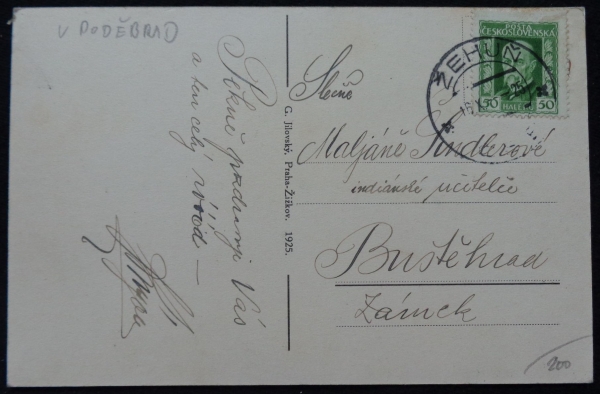 V PODĚBRAD
Pěkně pozdravuji Vás
a ten celý
G. Jilovský, Praha-Žižkov. 1925.
POSTA
ČESKOSLOVENSKÁ
50 HALÉŘŮ 50
ŽEHUŇ
Slečně
Maljáně Findlerové
indiánské učitelce
Buštěhrad
Zámek
200